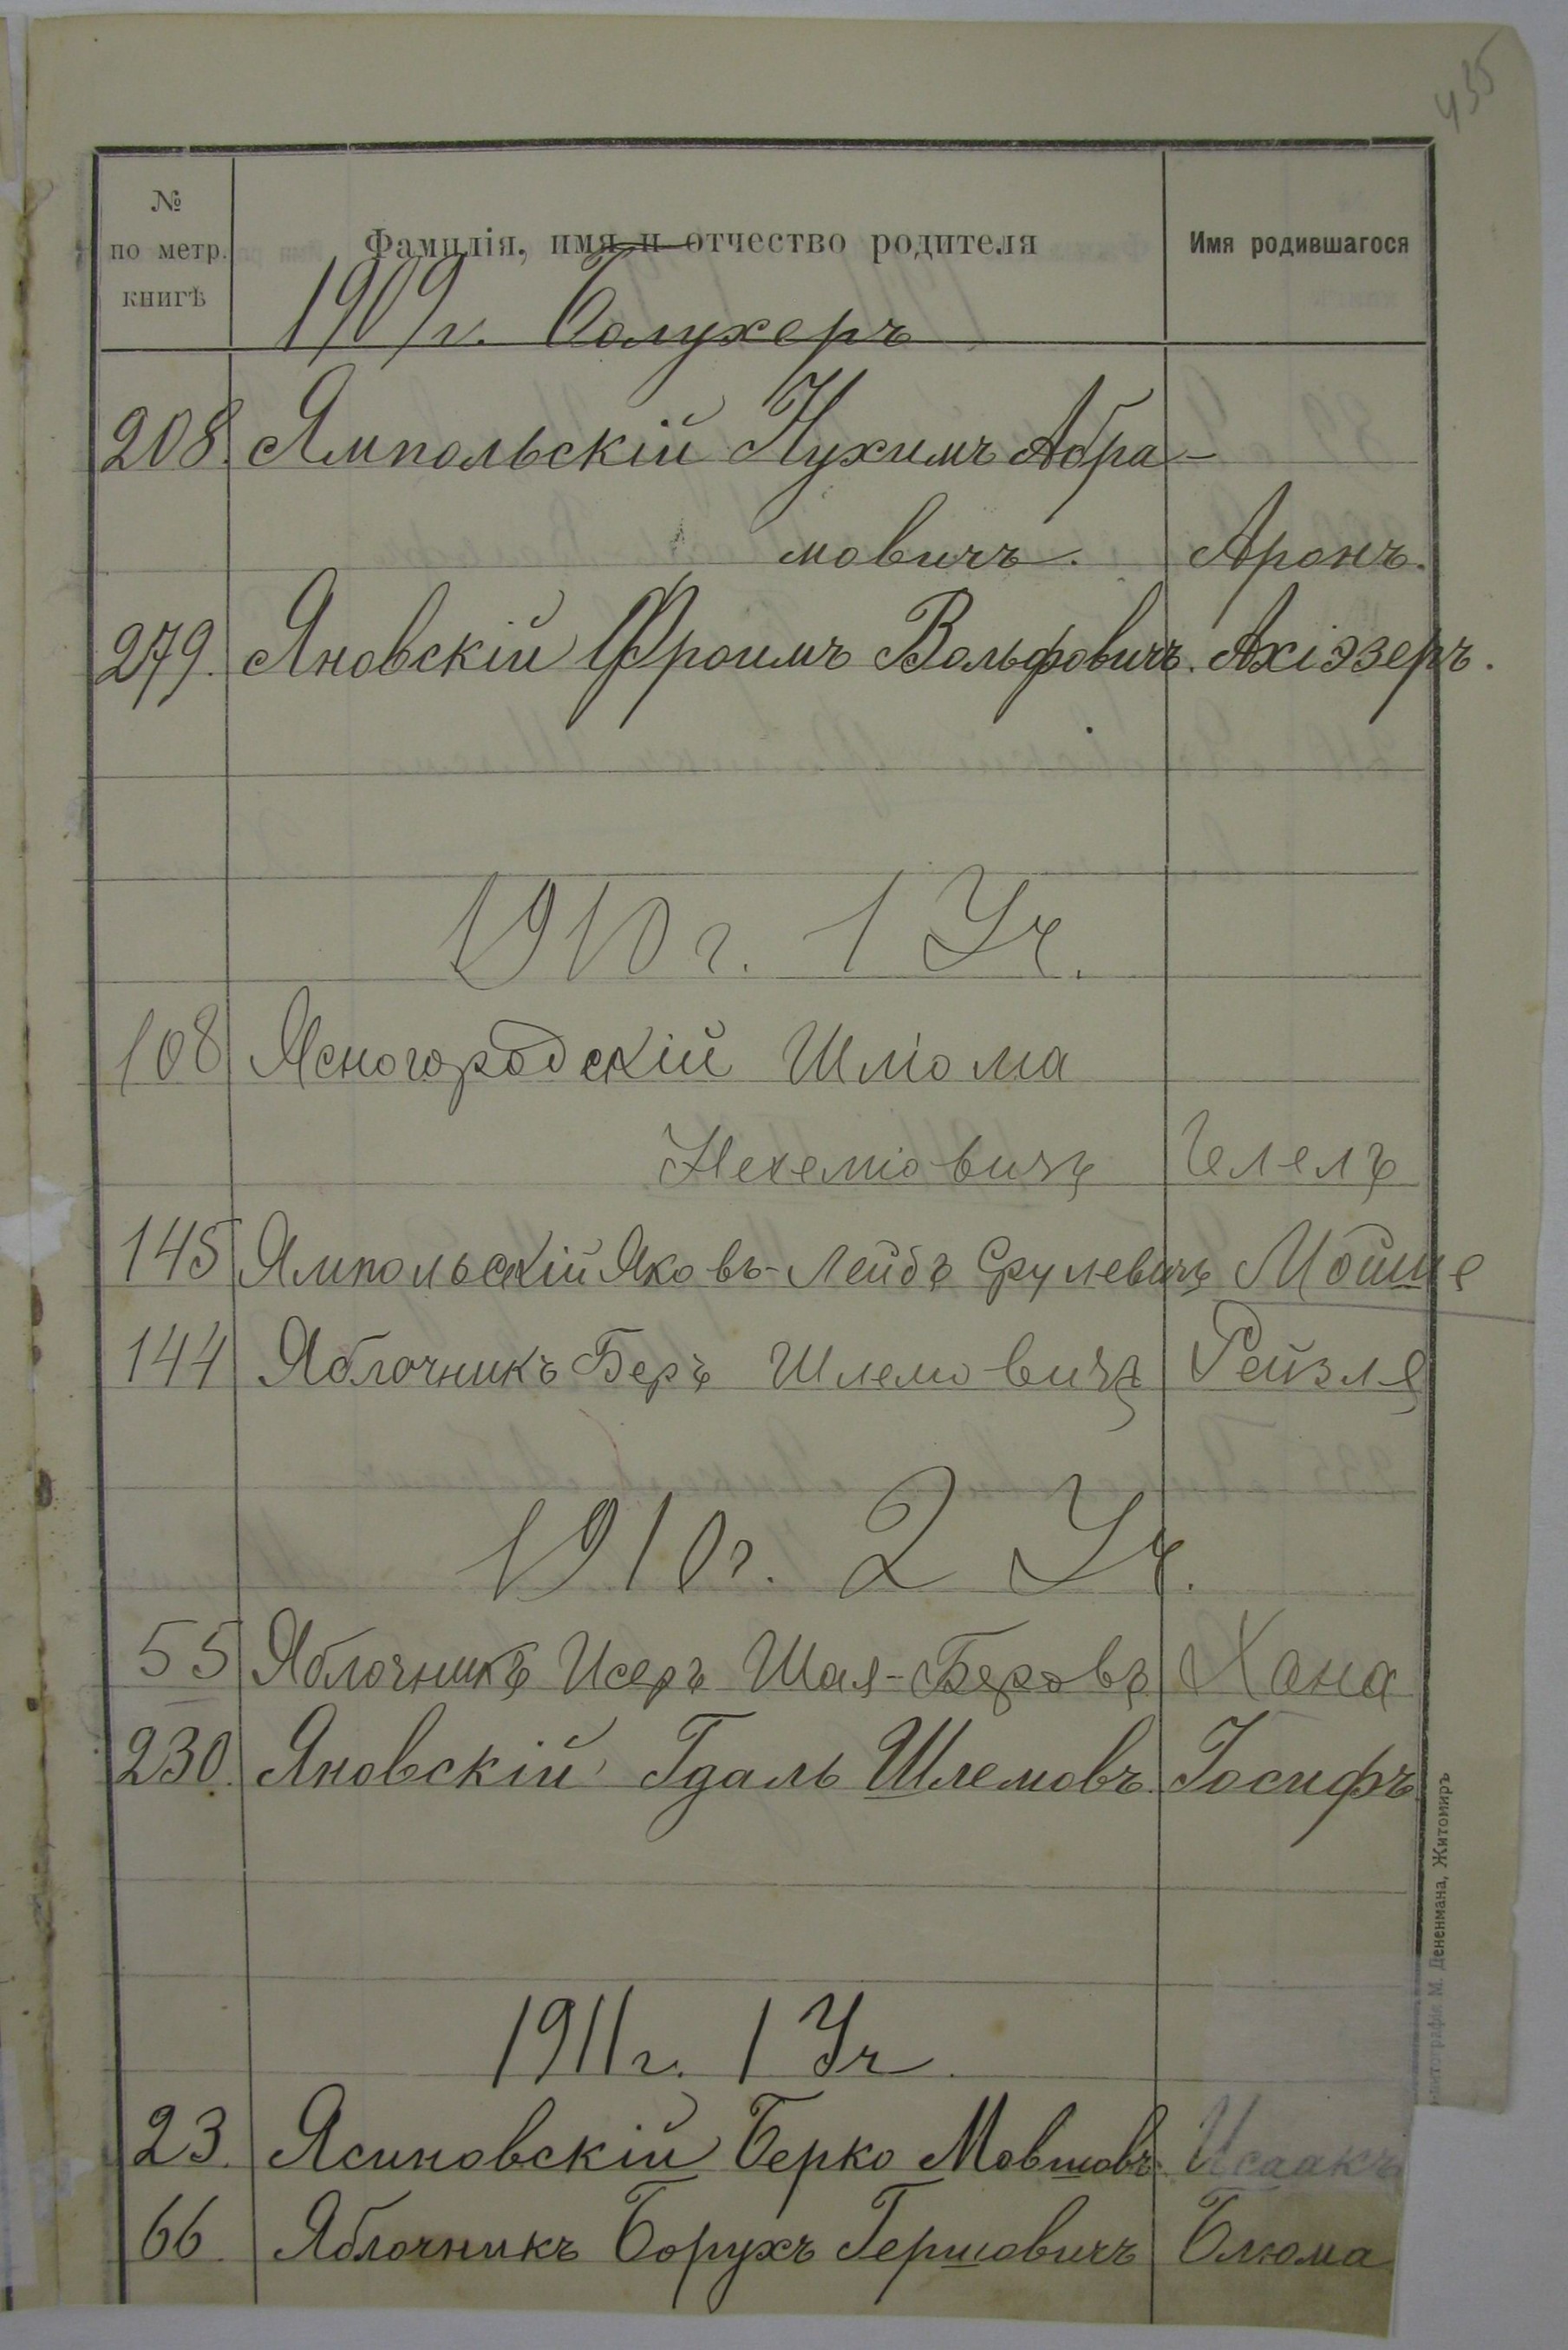 435
№ по метр. книгѣ
Фамилія, имя и отчество родителя
Имя родившагося
1909 г. Болухеръ
208. Ямпольскій Нухимъ Абра-
мовичъ. Аронъ.
279. Яновскій Фроимъ Вольфовичъ. Ахіэзеръ.
1910 г. 1 Уч.
108 Ясногородскій Шліома
Нехеміовичъ Гелелъ
145 Ямпольскій Яковъ-Лейбъ Срулевичъ Мойше
144 Яблочникъ Беръ Шлемовичъ Рейзля
1910 г. 2 Уч.
55 Яблочникъ Исеръ Шая-Беровъ Хана
230. Яновскій Гдаль Шлемовъ. Іосифъ
1911 г. 1 Уч.
23. Ясиновскій Берко Мовшовъ Исаакъ
66. Яблочникъ Борухъ Гершовичъ Блюма
М. Дененмана, Житомиръ